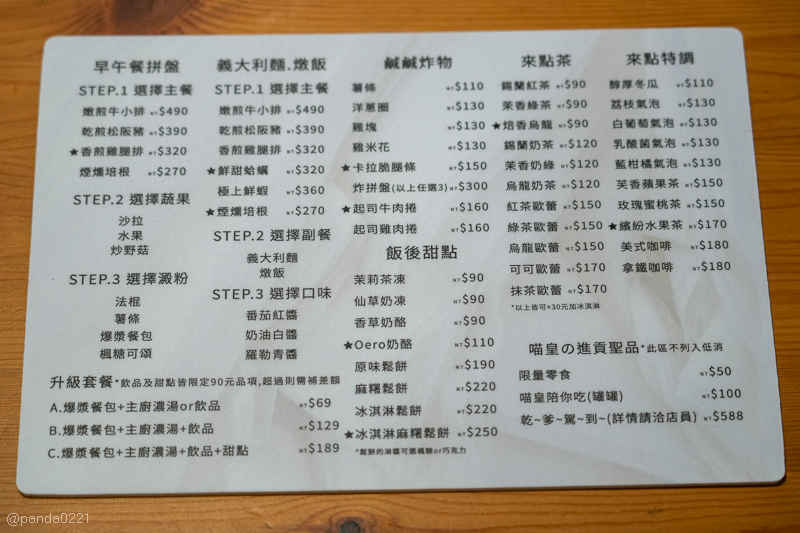 早午餐拼盤
STEP.1 選擇主餐
嫩煎牛小排 NT$490
乾煎松阪豬 NT$390
★香煎雞腿排 NT$320
煙燻培根 NT$270
STEP.2 選擇蔬果
沙拉
水果
炒野菇
STEP.3 選擇澱粉
法棍
薯條
爆漿餐包
楓糖可頌
義大利麵.燉飯
STEP.1 選擇主餐
嫩煎牛小排 NT$490
乾煎松阪豬 NT$390
香煎雞腿排 NT$320
★鮮甜蛤蠣 NT$320
極上鮮蝦 NT$360
★煙燻培根 NT$270
STEP.2 選擇副餐
義大利麵
燉飯
STEP.3 選擇口味
番茄紅醬
奶油白醬
羅勒青醬
升級套餐 *飲品及甜點皆限定90元品項,超過則需補差額
A.爆漿餐包+主廚濃湯or飲品 NT$69
B.爆漿餐包+主廚濃湯+飲品 NT$129
C.爆漿餐包+主廚濃湯+飲品+甜點 NT$189
鹹鹹炸物
薯條 NT$110
洋蔥圈 NT$130
雞塊 NT$130
雞米花 NT$130
★卡拉脆腿條 NT$150
炸拼盤(以上任選3) NT$300
★起司牛肉捲 NT$160
起司雞肉捲 NT$160
飯後甜點
茉莉茶凍 NT$90
仙草奶凍 NT$90
香草奶酪 NT$90
★Oero奶酪 NT$110
原味鬆餅 NT$190
麻糬鬆餅 NT$220
冰淇淋鬆餅 NT$220
★冰淇淋麻糬鬆餅 NT$250
*鬆餅的淋醬可選楓糖or巧克力
來點茶
錫蘭紅茶 NT$90
茉香綠茶 NT$90
★焙香烏龍 NT$90
錫蘭奶茶 NT$120
茉香奶綠 NT$120
烏龍奶茶 NT$120
紅茶歐蕾 NT$150
綠茶歐蕾 NT$150
烏龍歐蕾 NT$150
可可歐蕾 NT$170
抹茶歐蕾 NT$170
*以上皆可+30元加冰淇淋
來點特調
醇厚冬瓜 NT$110
荔枝氣泡 NT$130
白葡萄氣泡 NT$130
乳酸菌氣泡 NT$130
藍柑橘氣泡 NT$130
芙香蘋果茶 NT$150
玫瑰蜜桃茶 NT$150
★繽紛水果茶 NT$170
美式咖啡 NT$180
拿鐵咖啡 NT$180
喵皇の進貢聖品 *此區不列入低消
限量零食 NT$50
喵皇陪你吃(罐罐) NT$100
乾~爹~駕~到~(詳情請洽店員) NT$588
@panda0221